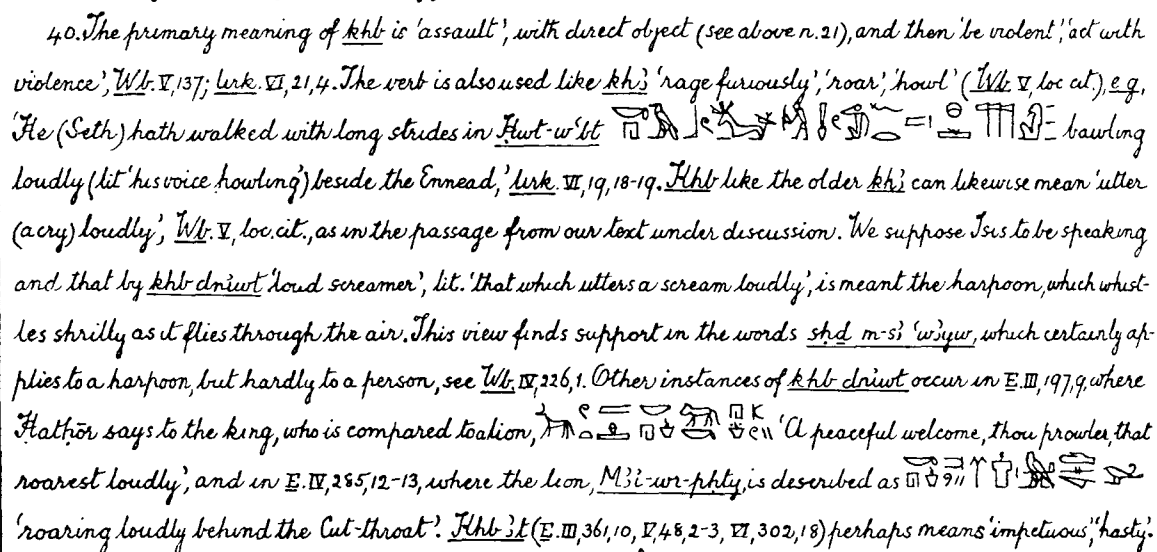 40. The primary meaning of khb is 'assault', with direct object (see above n. 21), and then 'be violent', 'act with
violence', Wb. V, 137; Urk. VI, 21, 4. The verb is also used like khꜣ 'rage furiously', 'roar', 'howl' (Wb. V, loc. cit.), e.g.
'He (Seth) hath walked with long strides in Ḥwt-wꜥbt bawling
loudly (lit. 'his voice howling') beside the Ennead,' Urk. VI, 19, 18-19. Khb like the older khꜣ can likewise mean 'utter
(a cry) loudly', Wb. V, loc. cit., as in the passage from our text under discussion. We suppose Isis to be speaking
and that by khb dniwt 'loud screamer', lit. 'that which utters a scream loudly', is meant the harpoon, which whist-
les shrilly as it flies through the air. This view finds support in the words sḫd m-sꜣ ꜥwꜣyw, which certainly ap-
plies to a harpoon, but hardly to a person, see Wb. IV, 226, 1. Other instances of khb dniwt occur in E. III, 197, 9, where
Ḥatḥōr says to the king, who is compared to a lion, 'A peaceful welcome, thou prowler, that
roarest loudly', and in E. IV, 285, 12-13, where the lion, Mꜣi-wr-pḥty, is described as
'roaring loudly behind the Cut-throat'. Khb ꜣt (E. III, 361, 10, V, 48, 2-3, VI, 302, 18) perhaps means 'impetuous', 'hasty'.